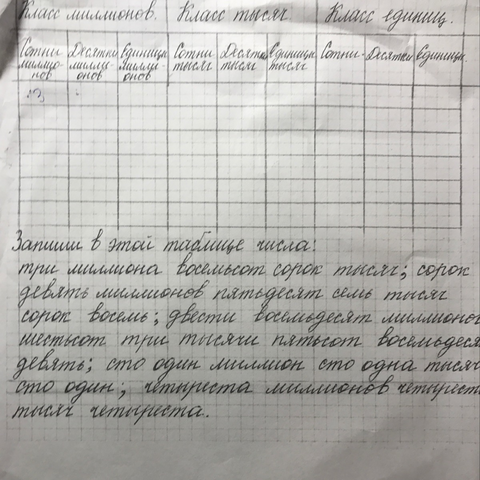 Класс миллионов. Класс тысяч Класс единиц.
Сотни миллио- нов Десятки милли- онов Единицы милли- онов Сотни тысяч Десятки тысяч Единицы тысяч Сотни Десятки Единицы
Запиши в этой таблице числа:
три миллиона восемьсот сорок тысяч; сорок
девять миллионов пятьдесят семь тысяч
сорок восемь; двести восемьдесят миллионов
шестьсот три тысячи пятьсот восемьдеся
девять; сто один миллион сто одна тысяч
сто один; четыреста миллионов четырест
тысяч четыреста.